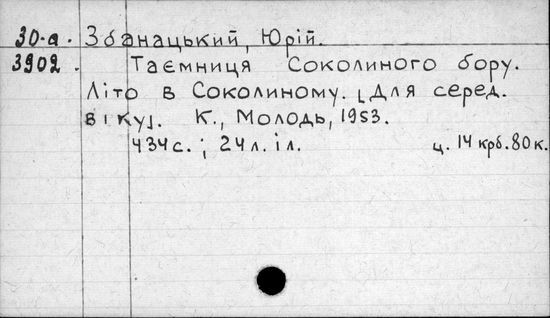 30-а. Збанацький, Юрій.
3902. Таємниця Соколиного бору.
Літо в Соколиному. [Для серед.
віку]. К., Молодь, 1953.
434 с.; 24 л. іл. ц. 14 крб. 80 к.